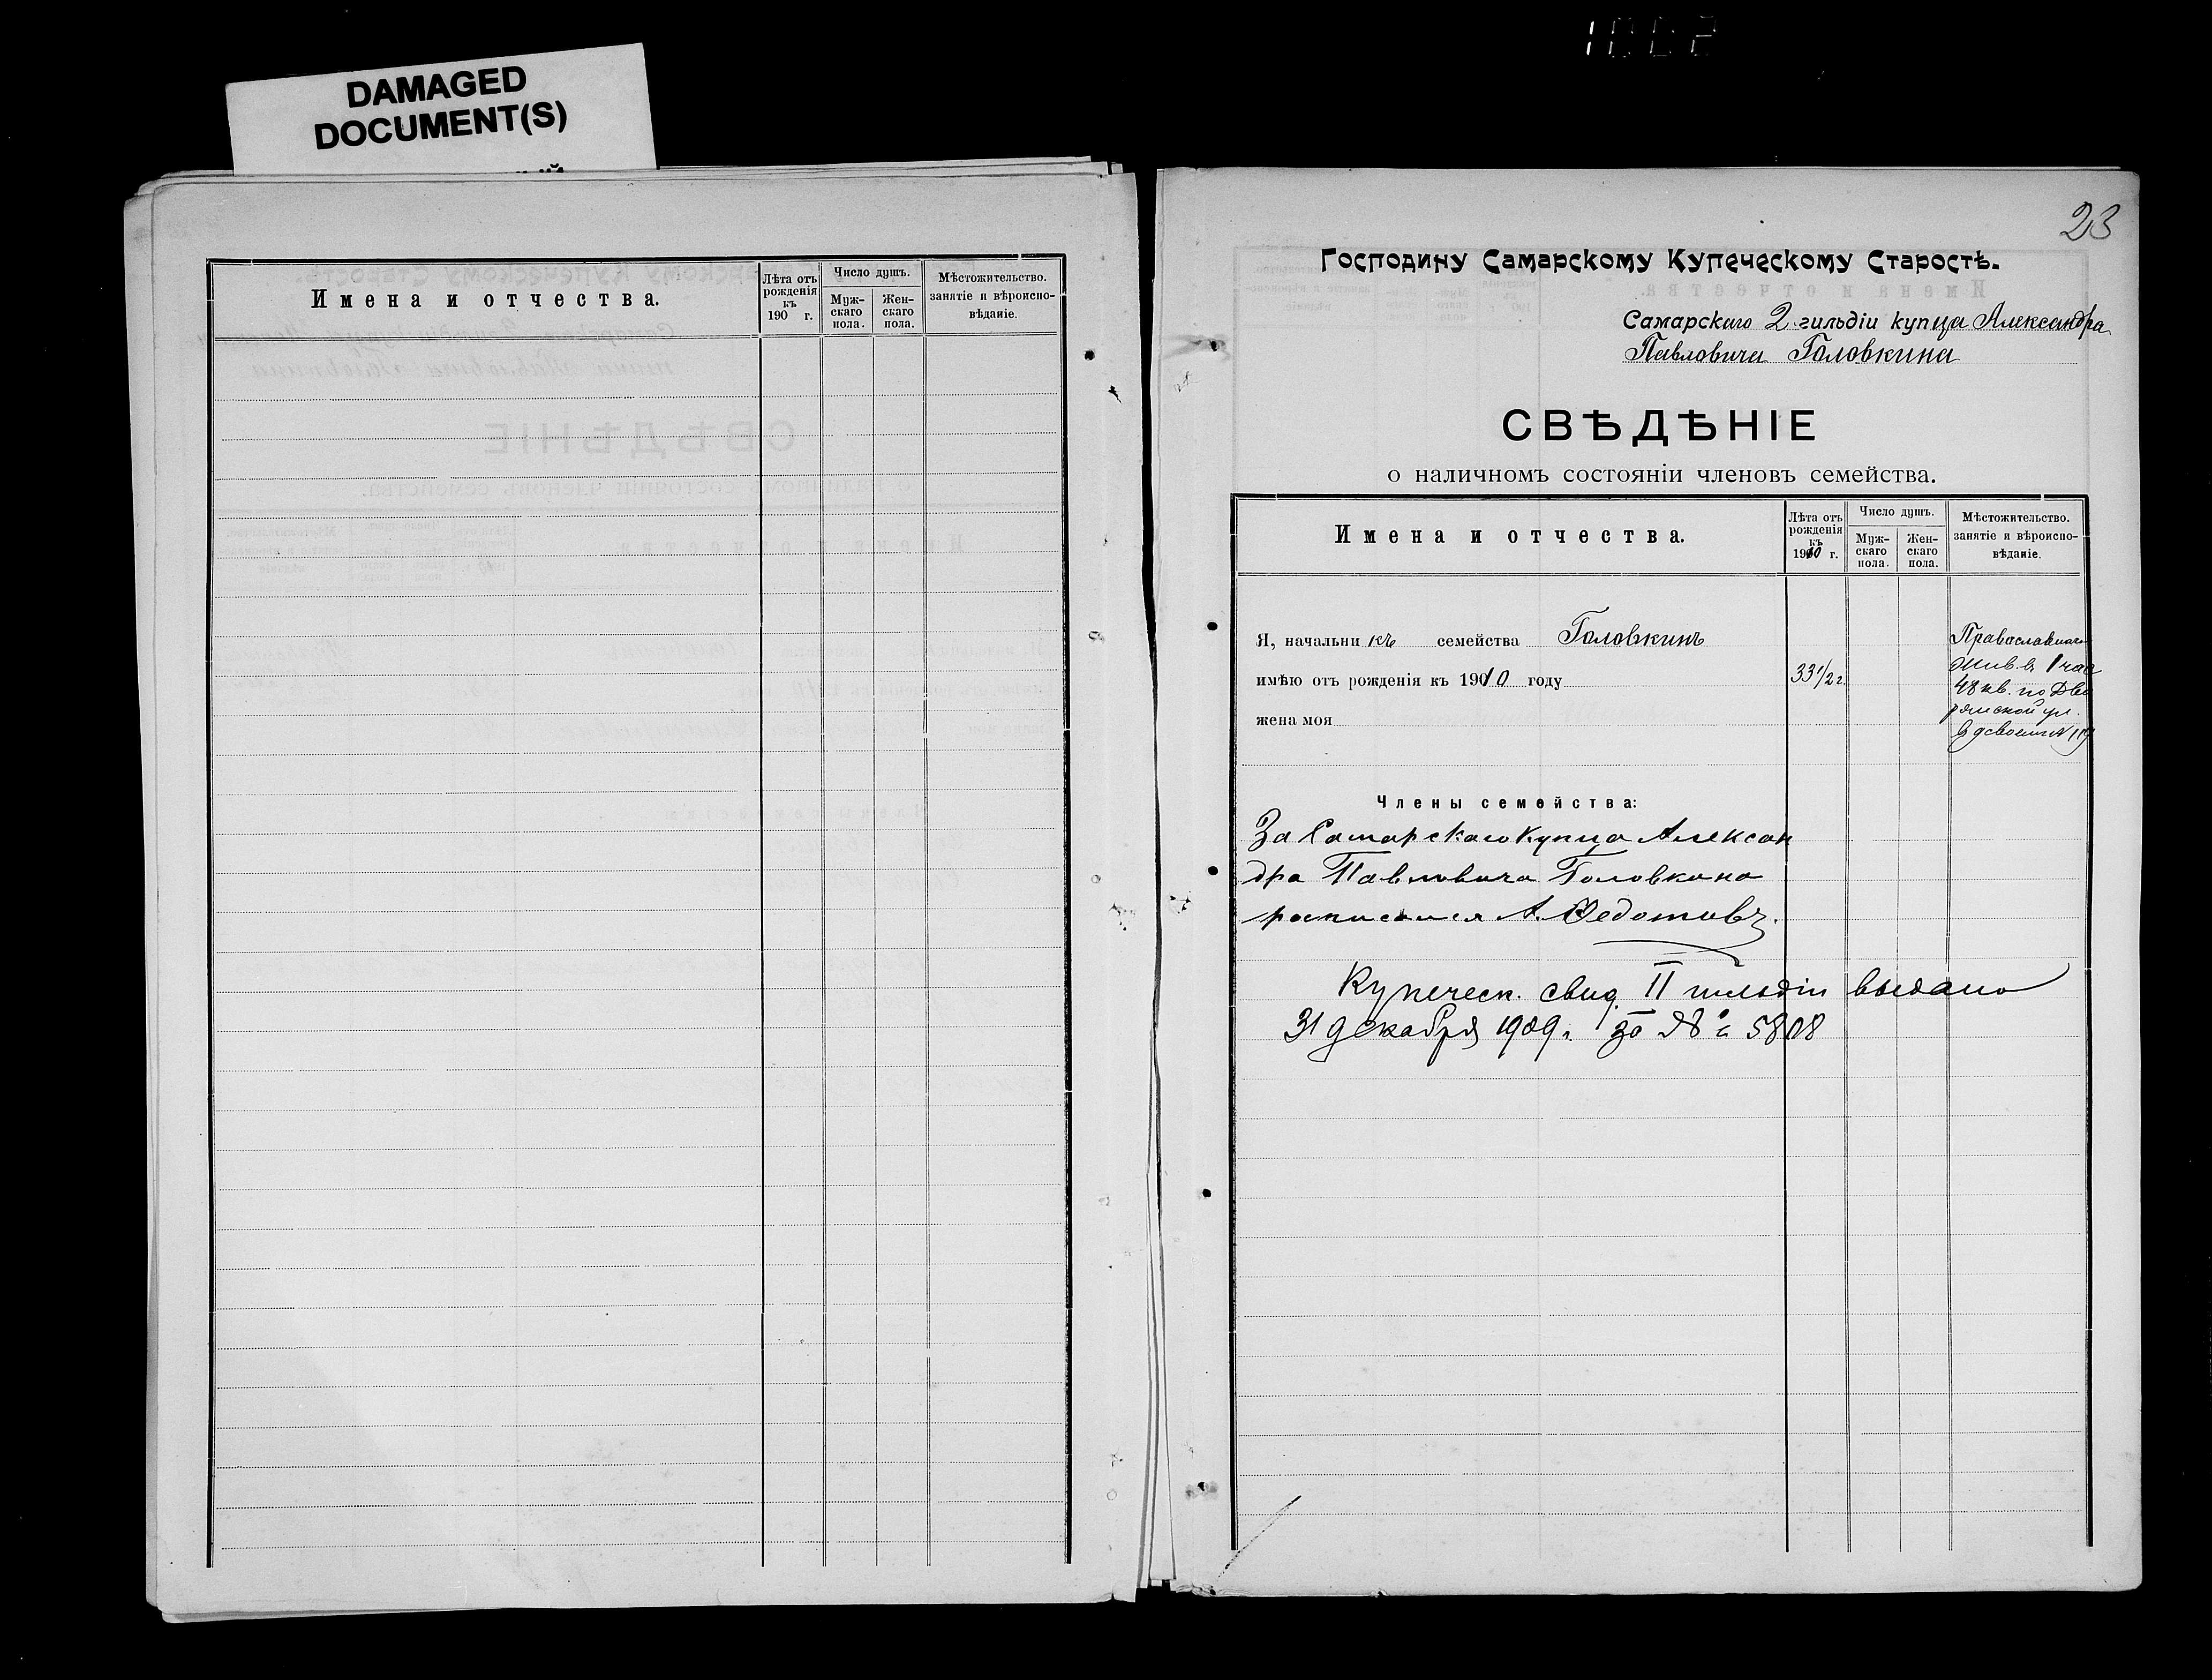 1002
DAMAGED
DOCUMENT(S)
Имена и отчества.
Лѣта отъ рожденія къ 190 г.
Число душъ.
Муж-скаго пола.
Жен-скаго пола.
Мѣстожительство. занятіе и вѣроиспо-вѣданіе.
23
Господину Самарскому Купеческому Старостѣ.
Самарскаго 2 гильдіи купца Александра
Павловича Головкина
СВѢДѢНІЕ
о наличномъ состояніи членовъ семейства.
Имена и отчества.
Лѣта отъ рожденія къ 1910 г.
Число душъ.
Муж-скаго пола.
Жен-скаго пола.
Мѣстожительство. занятіе и вѣроиспо-вѣданіе.
Я, начальникъ семейства Головкинъ
имѣю отъ рожденія къ 1910 году 33 1/2 г.
жена моя
Православнаго
жив. в 1 час
48 кв. по Дво
рянской ул.
в д своемъ №
Члены семейства:
За Самарскаго купца Алексан
дра Павловича Головкина
росписался А. Ѳедотовъ.
Купеческ. свид. II гильдіи выдано
31 декабря 1909 г. за № 5808